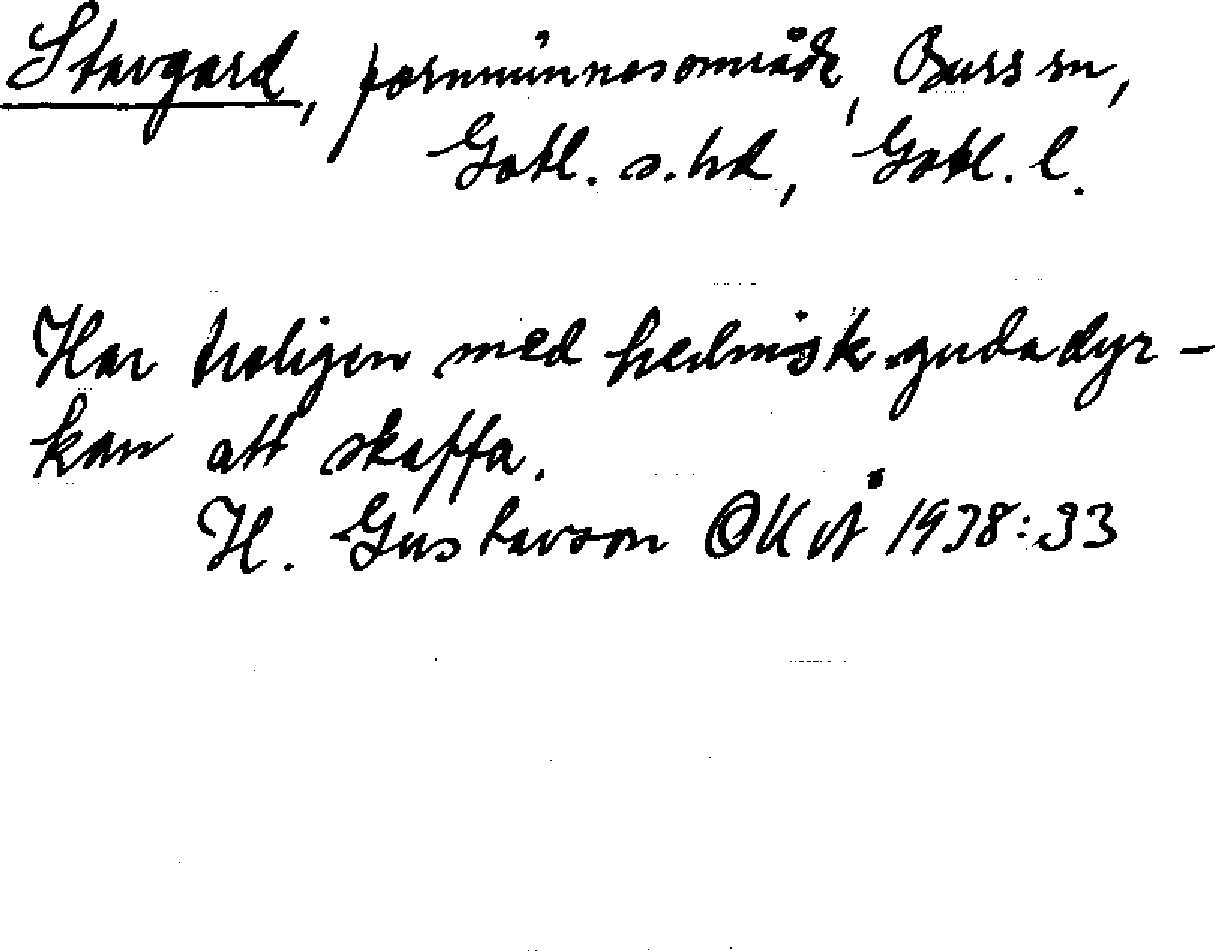 Stavgard, fornminnesområde, Burs sn,
Gotl. s. hd, Gotl. l.
Har troligen med hednisk gudadyr-
kan att skaffa.
H. Gustavson OKvÅ 1938:33